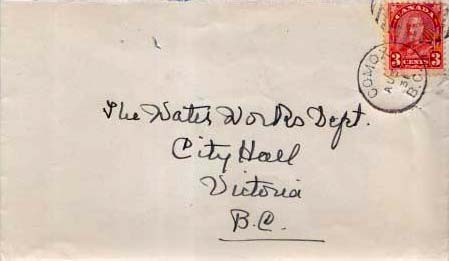 CANADA
3 CENTS 3
COMOX
AU
31
B.C.
The Water Works Dept.
City Hall
Victoria
B.C.